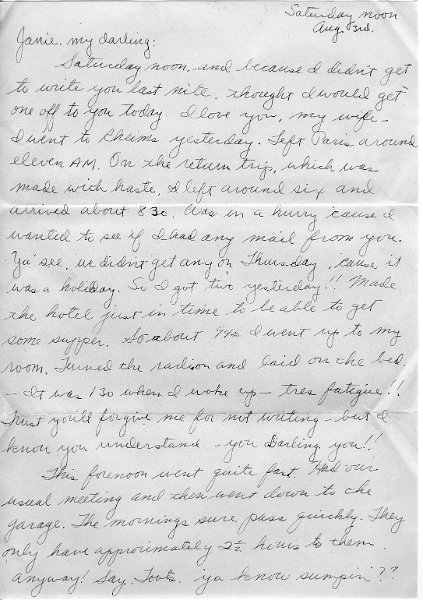 Saturday noon
Aug. 3rd.
Janie, my darling:
Saturday noon, and because I didn't get
to write you last nite, thought I would get
one off to you today. I love you, my wife -
I went to Rheims yesterday. Left Paris around
eleven AM. On the return trip, which was
made with haste, I left around six and
arrived about 830. Was in a hurry 'cause I
wanted to see if I had any mail from you.
Ya' see, we didn't get any on Thursday, 'cause it
was a holiday. So I got two yesterday!! Made
the hotel just in time to be able to get
some supper. So about 945 I went up to my
room. Turned the radion and laid on the bed.
- It was 130 when I woke up - tres fatigue!!
Trust you'll forgive me for not writing - but I
know you understand - you darling you!!
This forenoon went quite fast. Had our
usual meeting and then went down to the
garage. The mornings sure pass quickly. They
only have approximately 2½ hours to them
anyway! Say, Toots, ya know sumpin'??